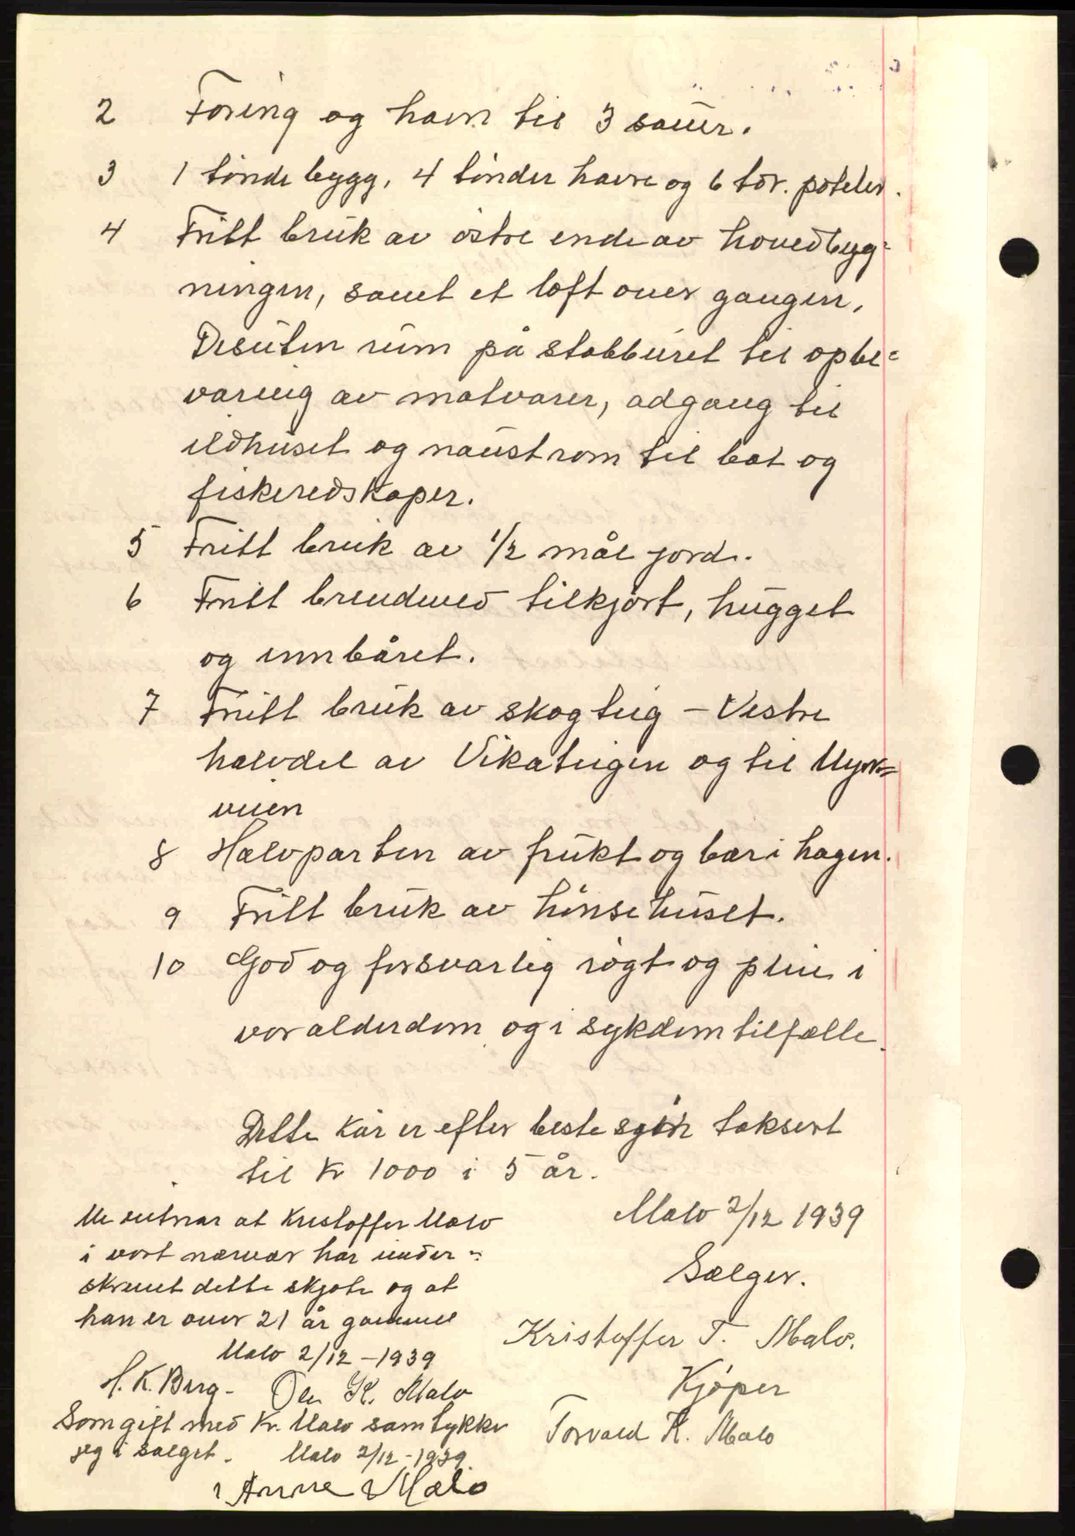 2 Foring og havn til 3 sauer.
3 1 tønde bygg, 4 tønder havre og 6 tdr. poteter.
4 Fritt bruk av østre ende av hovedbyg=
ningen, samt et loft over gangen,
Desuten rum på stabburet til opbe=
varing av matvarer, adgang til
ildhuset og naustrom til båt og
fiskeredskaper.
5 Fritt bruk av 1/2 mål jord.
6 Fritt brendeved tilkjørt, hugget
og innbåret.
7 Fritt bruk av skogteig – Vestre
halvdel av Vikateigen og til Myr=
veien
8 Halvparten av frukt og bær i hagen.
9 Fritt bruk av hønsehuset.
10 God og forsvarlig røgt og pleie i
vor alderdom og i sykdomtilfælle.
Dette kår er efter beste skjøn taksert
til Kr 1000 i 5 år.
Malo 2/12 1939
Sælger.
Kristoffer T. Malo.
Kjøper
Torvald K. Malo
Me vitnar at Kristoffer Malo
i vort nærvær har under=
skrevet dette skjøte og at
han er over 21 år gammel
Malo 2/12 – 1939
H. K. Berg. Ole K. Malo
Som gift med Kr. Malo samtykker
jeg i salget. Malo 2/12 – 1939.
Anne Malo